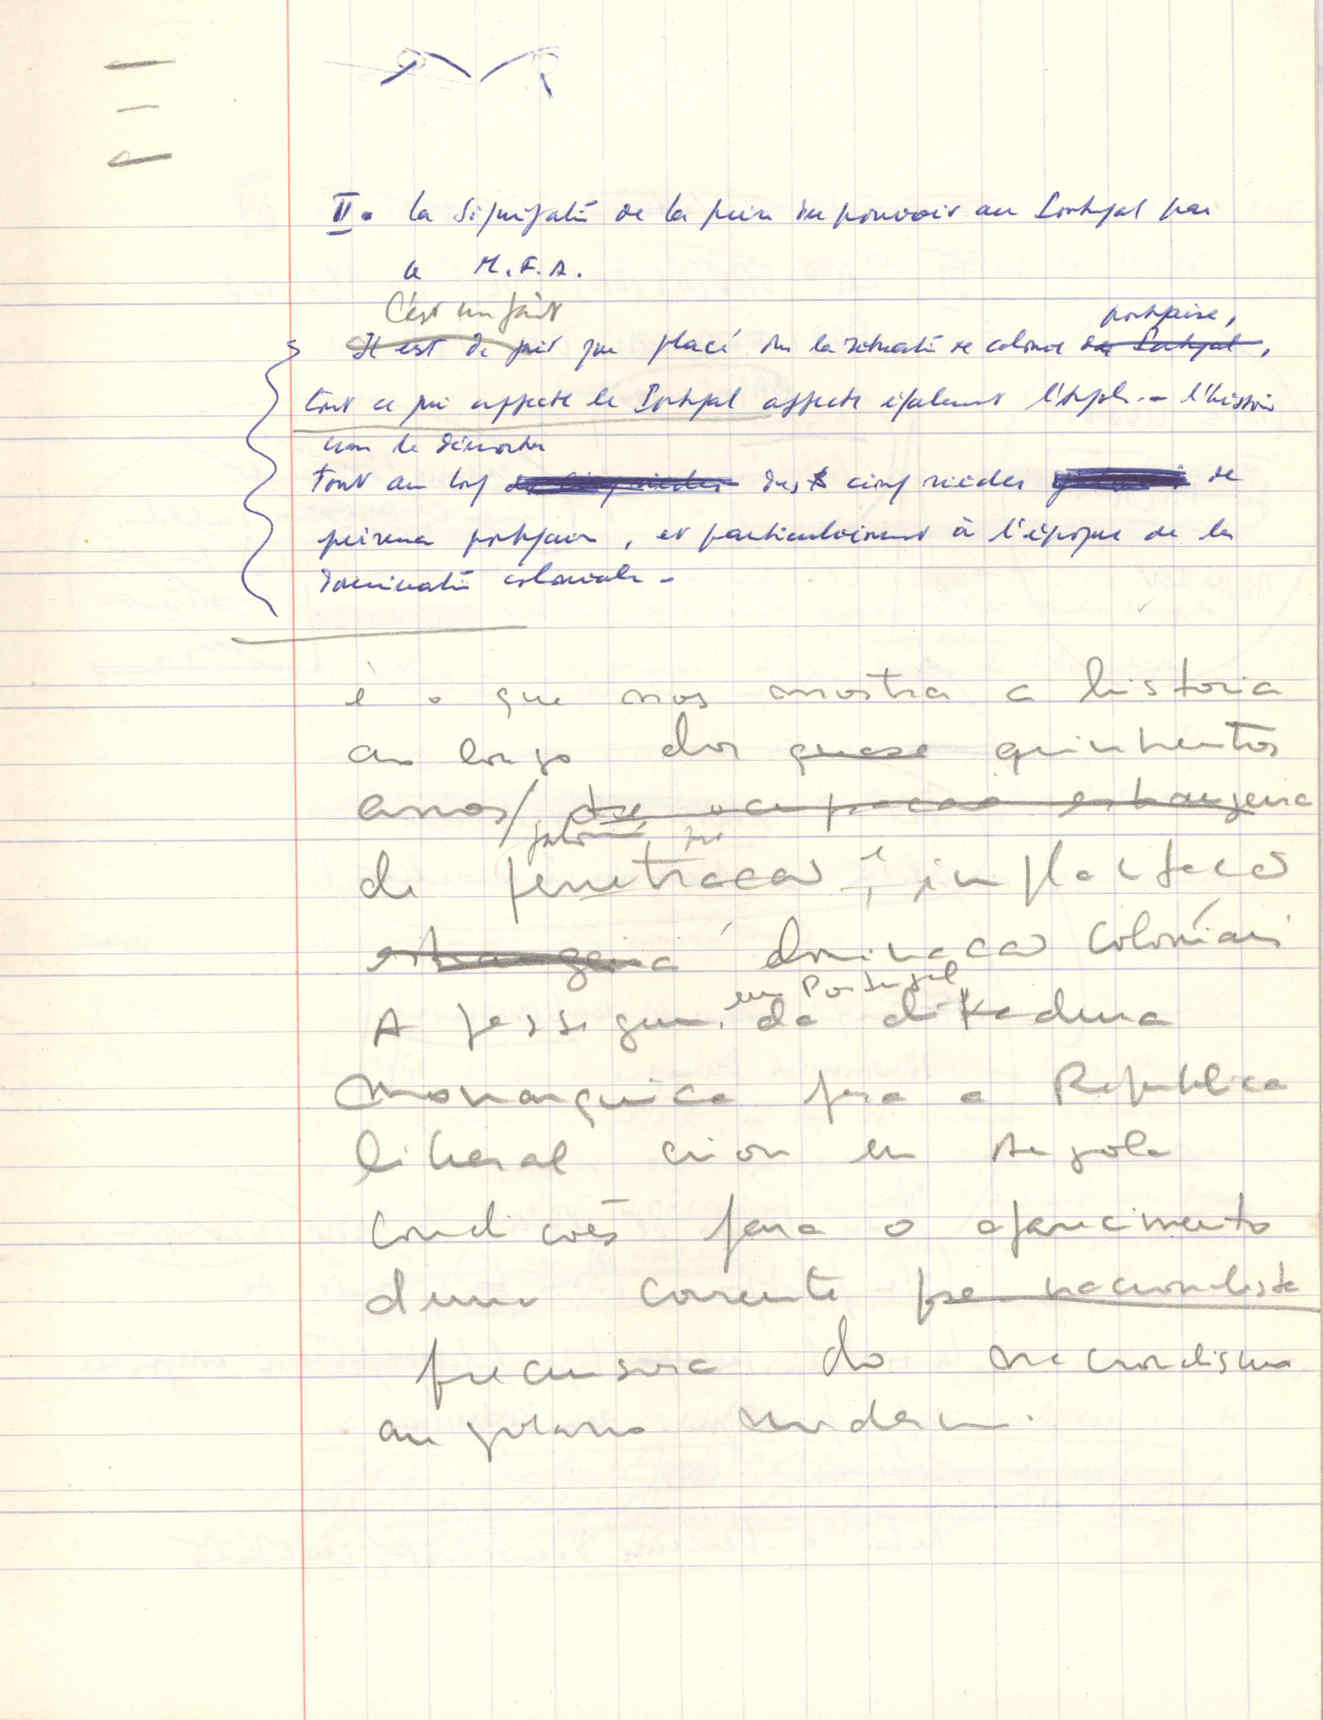 II. La signification de la prise du pouvoir au Portugal par
le M.F.A.
C'est un fait portugaise,
Il est de fait que placé dans la situation de colonie du Portugal,
tout ce qui affecte le Portugal affecte également l'Angola. - l'histoire
nous le démontre
tout au long de cinq siècles des cinq siècles de
présence portugaise, et particulièrement à l'époque de la
domination coloniale -
é o que nos mostra a historia
ao longo dos quase quinhentos
anos/ de ocupacao estrangeira
de penetracao, implantacao
estrangeira dominacao Coloniais
em Portugal
A passagem, da ditadura
monarquica para a Republica
liberal criou em Angola
condicões para o aparecimento
duma corrente pre nacionalista
precursora do nacionalismo
angolano moderno.